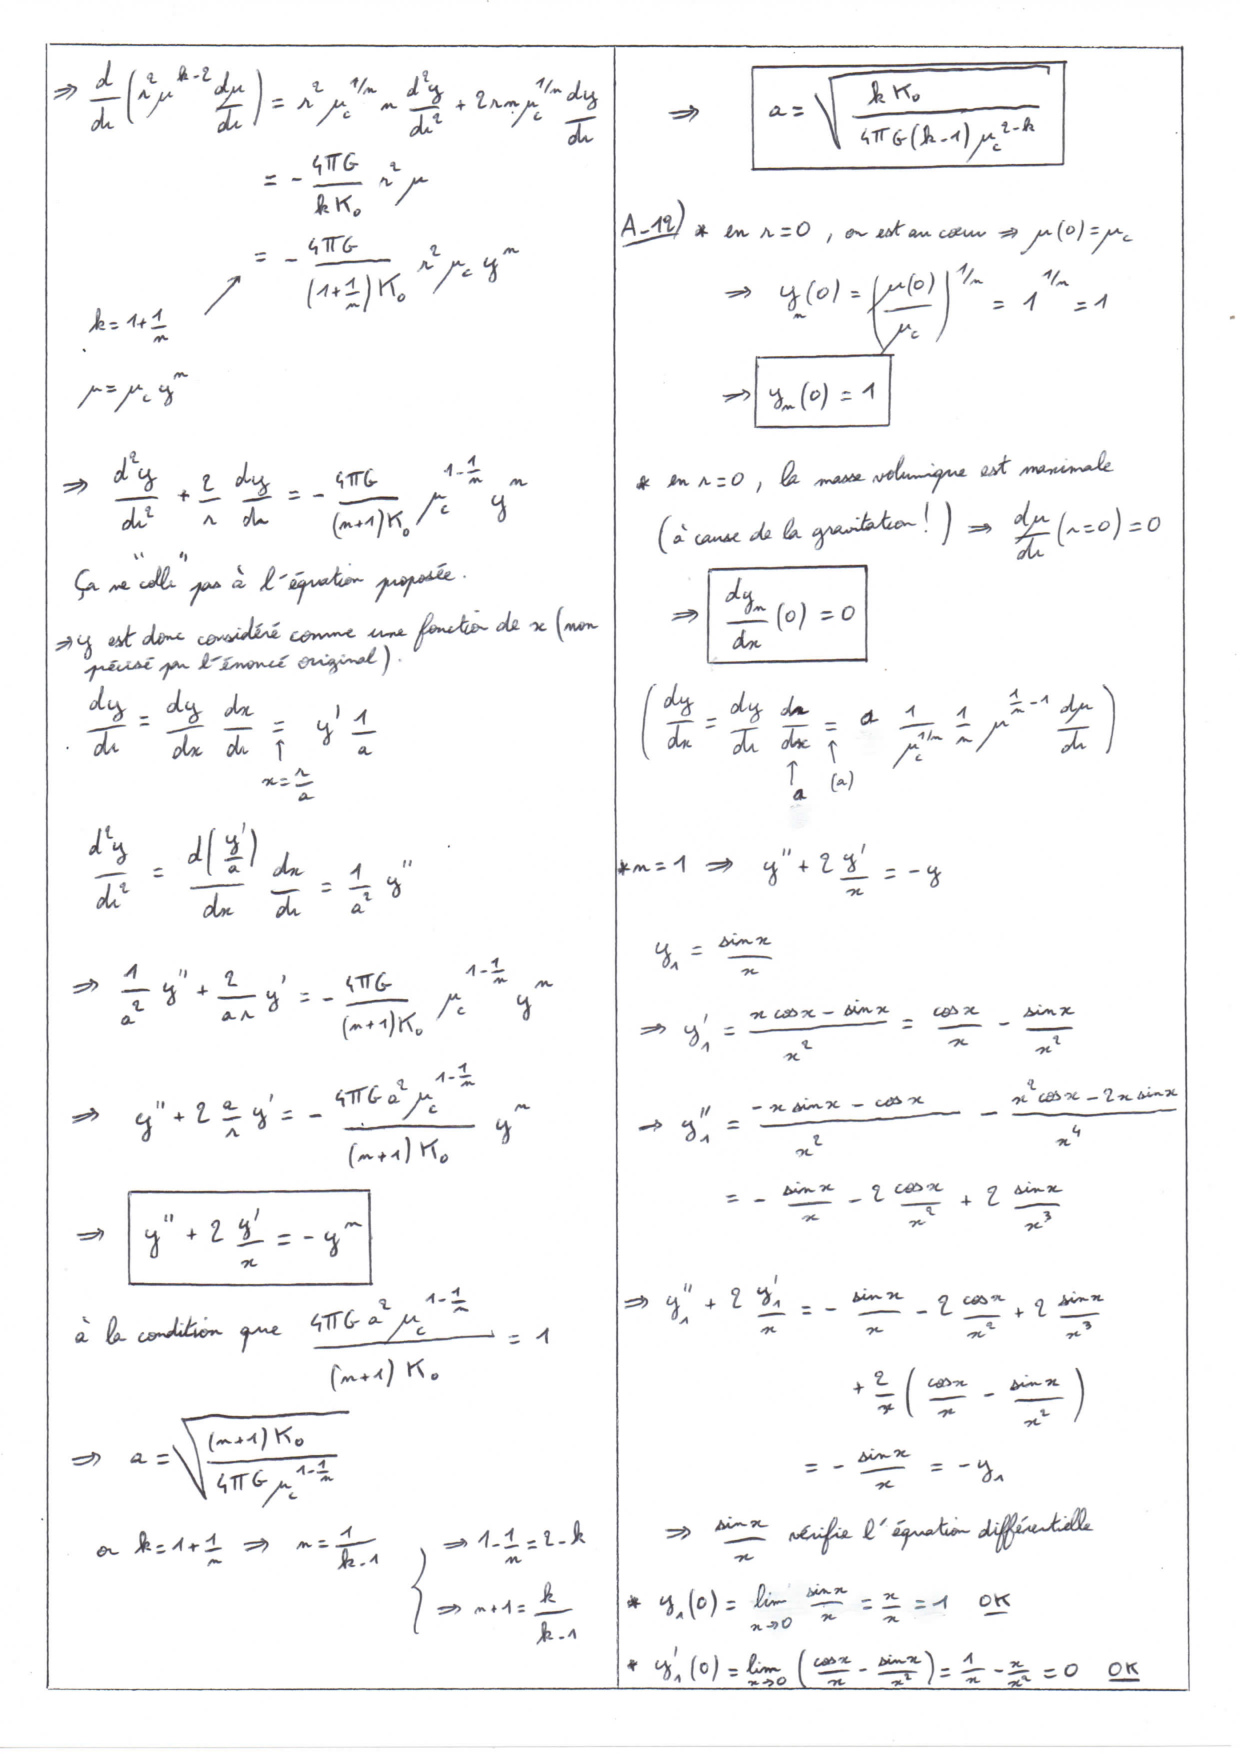 ⇒ d/dr (r² μ^(k-2) dμ/dr) = r² μc^(1/n) n d²y/dr² + 2rn μc^(1/n) dy/dr
= - 4πG/(k K₀) r² μ
= - 4πG/((1+1/n) K₀) r² μc y^n
k = 1+1/n
μ = μc y^n
⇒ d²y/dr² + 2/r dy/dr = - 4πG/((n+1)K₀) μc^(1-1/n) y^n
Ça ne "colle" pas à l'équation proposée.
⇒ y est donc considéré comme une fonction de x (non
précisé par l'énoncé original).
dy/dr = dy/dx dx/dr = y' 1/a
↑
x = r/a
d²y/dr² = d(y'/a)/dx dx/dr = 1/a² y''
⇒ 1/a² y'' + 2/(ar) y' = - 4πG/((n+1)K₀) μc^(1-1/n) y^n
⇒ y'' + 2 a/r y' = - 4πG a² μc^(1-1/n)/((n+1)K₀) y^n
⇒ y'' + 2 y'/x = - y^n
à la condition que 4πG a² μc^(1-1/n)/((n+1) K₀) = 1
⇒ a = √((n+1)K₀/(4πG μc^(1-1/n)))
or k = 1+1/n ⇒ n = 1/(k-1) } ⇒ 1-1/n = 2-k
⇒ n+1 = k/(k-1)
⇒ a = √(k K₀/(4πG(k-1) μc^(2-k)))
A-12) * en r=0, on est au cœur ⇒ μ(0) = μc
⇒ yn(0) = (μ(0)/μc)^(1/n) = 1^(1/n) = 1
⇒ yn(0) = 1
* en r=0, la masse volumique est maximale
(à cause de la gravitation!) ⇒ dμ/dr (r=0) = 0
⇒ dyn/dx (0) = 0
(dy/dx = dy/dr dr/dx = a 1/μc^(1/n) 1/n μ^(1/n -1) dμ/dr)
↑ ↑
a (a)
* n=1 ⇒ y'' + 2 y'/x = - y
y₁ = sin x/x
⇒ y₁' = (x cos x - sin x)/x² = cos x/x - sin x/x²
→ y₁'' = (-x sin x - cos x)/x² - (x² cos x - 2x sin x)/x⁴
= - sin x/x - 2 cos x/x² + 2 sin x/x³
⇒ y₁'' + 2 y₁'/x = - sin x/x - 2 cos x/x² + 2 sin x/x³
+ 2/x (cos x/x - sin x/x²)
= - sin x/x = - y₁
⇒ sin x/x vérifie l'équation différentielle
* y₁(0) = lim x→0 sin x/x = x/x = 1 OK
* y₁'(0) = lim x→0 (cos x/x - sin x/x²) = 1/x - x/x² = 0 OK